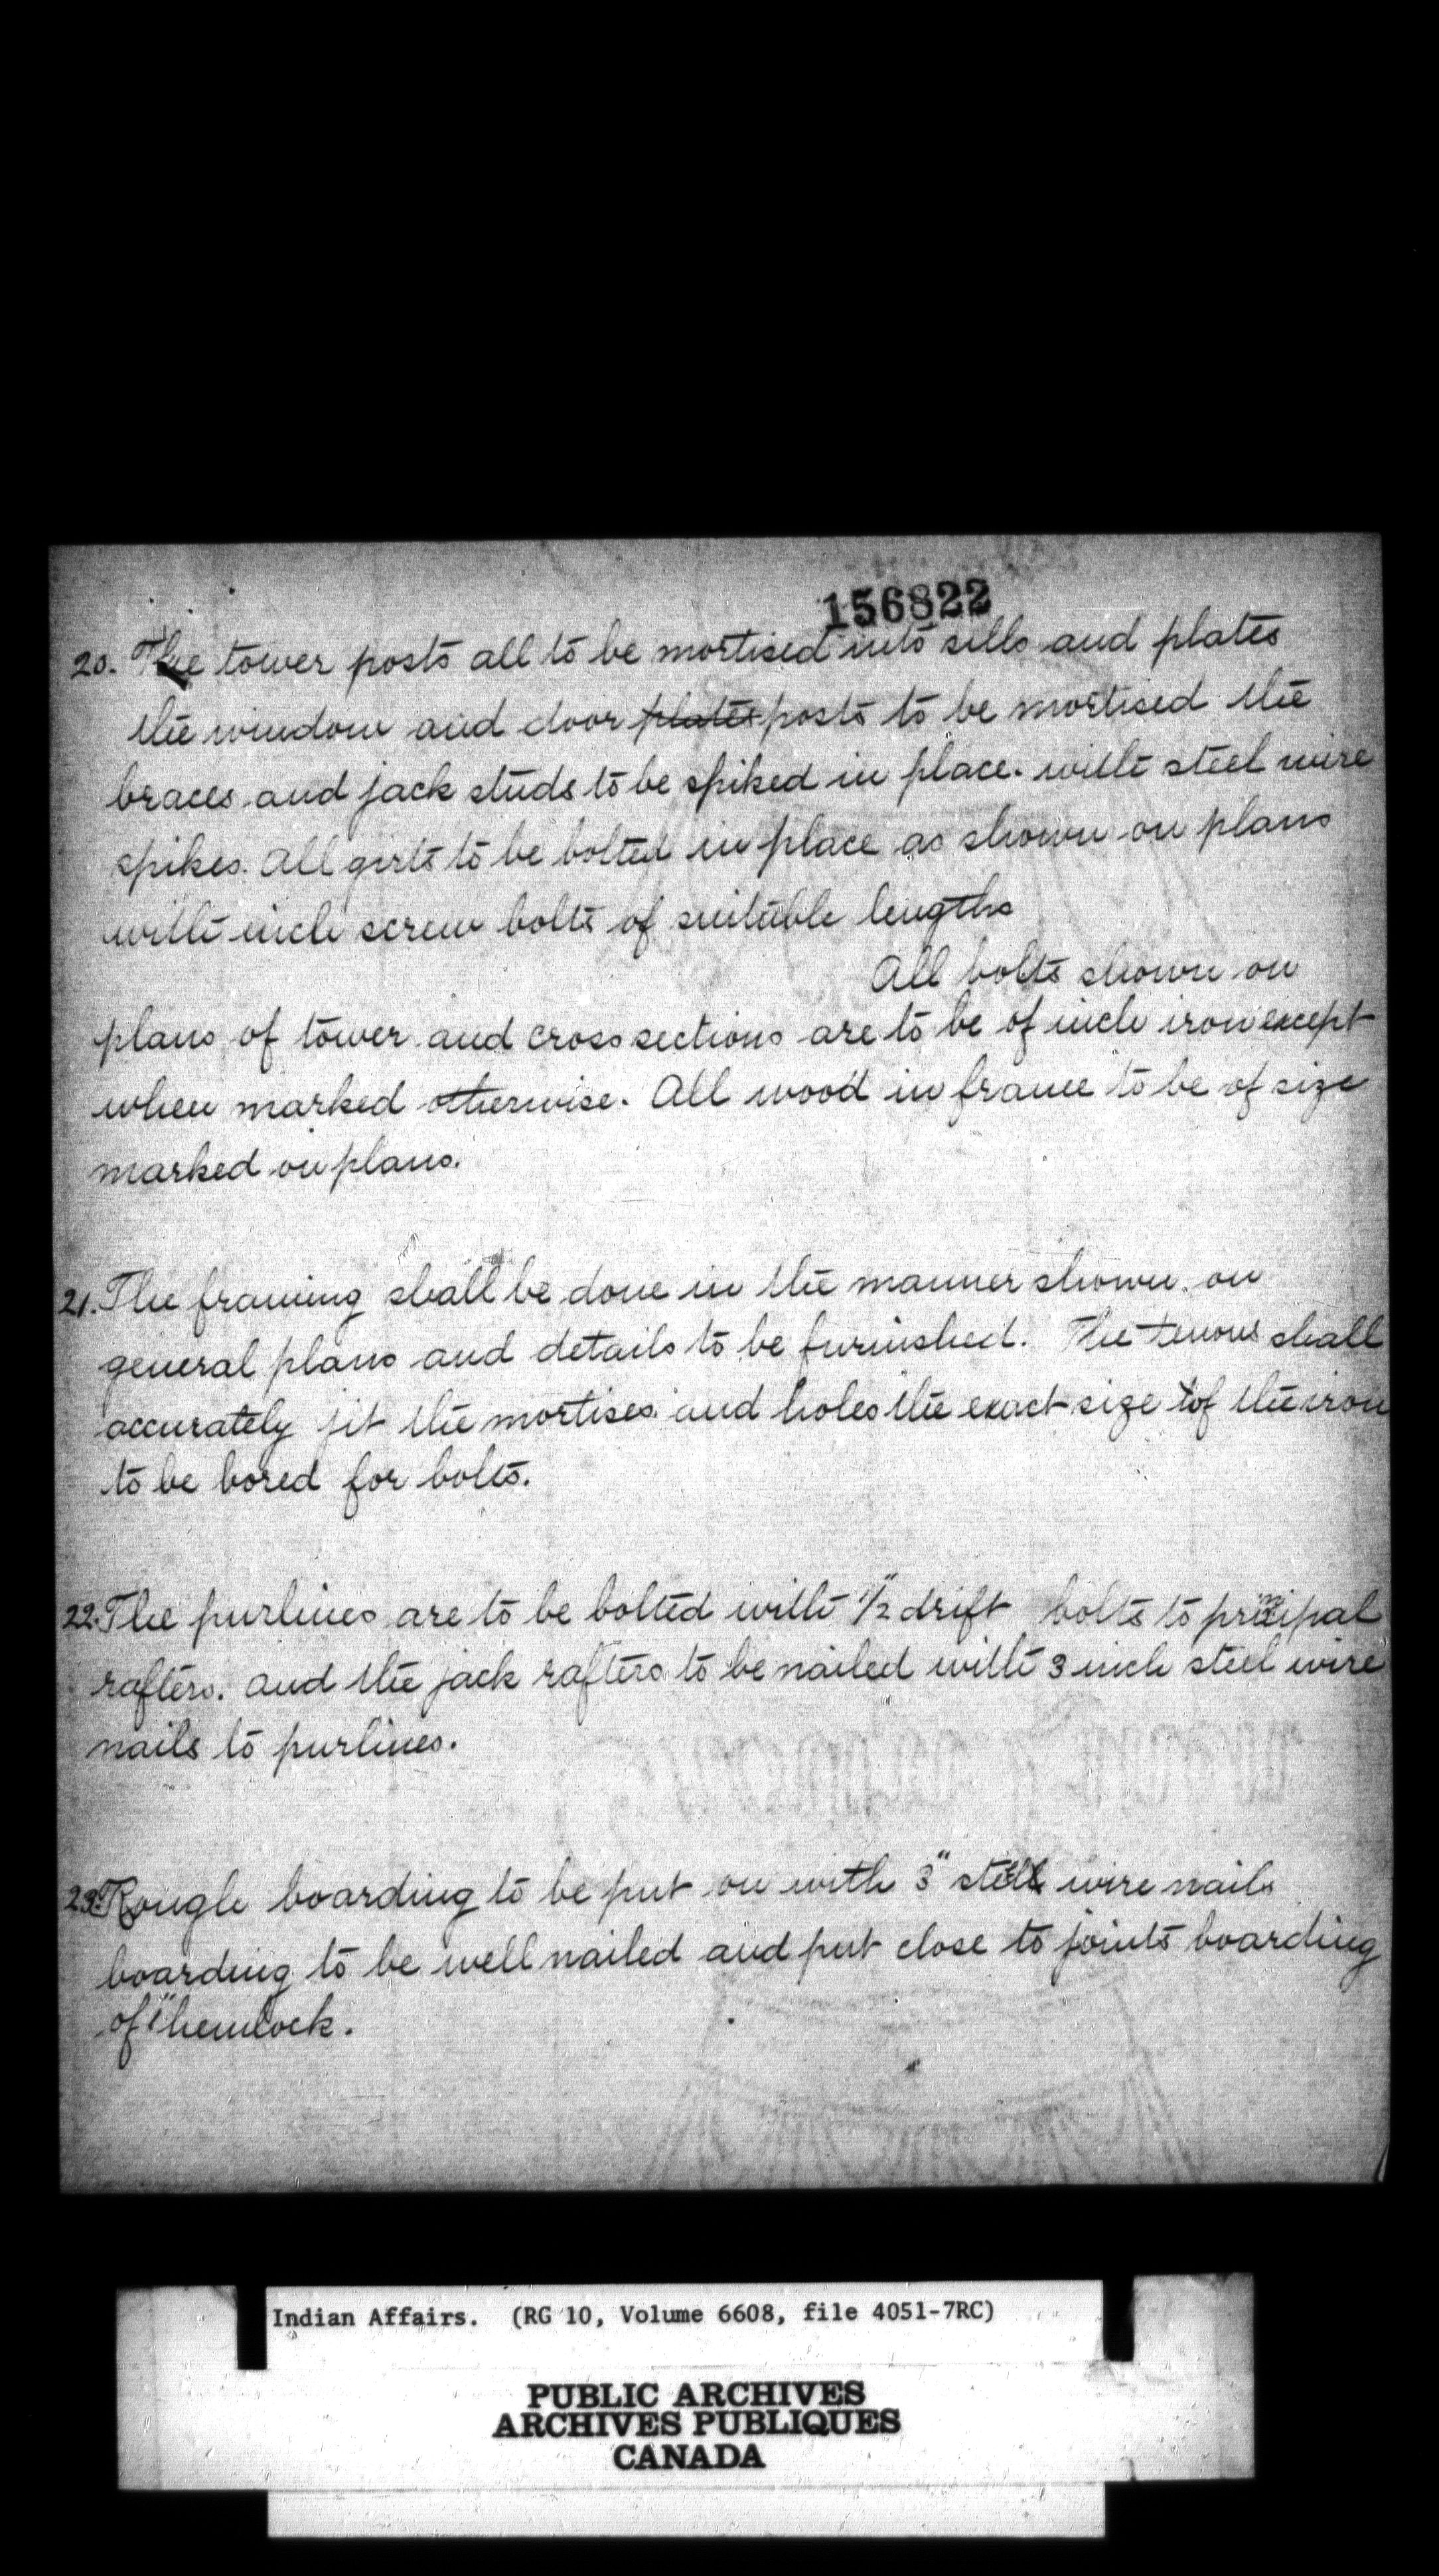 156822
20. The tower posts all to be mortised into sills and plates
the window and door plates posts to be mortised the
braces and jack studs to be spiked in place. with steel wire
spikes. All girts to be bolted in place as shown on plans
with inch screw bolts of suitable lengths
All bolts shown on
plans of tower and cross sections are to be of inch iron except
when marked otherwise. All wood in frame to be of size
marked on plans.
21. The framing shall be done in the manner shown on
general plans and details to be furnished. The tenons shall
accurately fit the mortises and holes the exact size of the iron
to be bored for bolts.
22. The purlines are to be bolted with 1/2" drift bolts to principal
rafters. and the jack rafters to be nailed with 3 inch steel wire
nails to purlines.
23. Rough boarding to be put on with 3" steel wire nails
boarding to be well nailed and put close to joints boarding
of 1" hemlock.
Indian Affairs. (RG 10, Volume 6608, file 4051-7RC)
PUBLIC ARCHIVES
ARCHIVES PUBLIQUES
CANADA